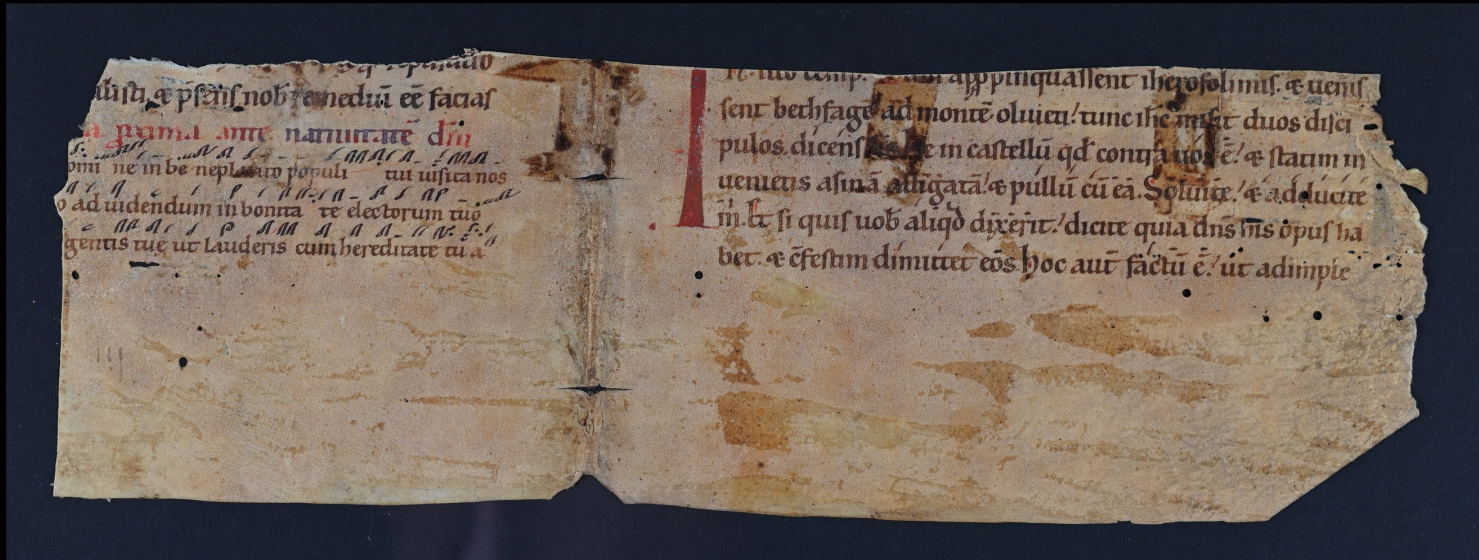 buisti. & p̄sentis nob̄ remediū eē facias
a prima ante natiuitatē dn̄i
omi ne in be neplacito populi tui uisita nos
o ad uidendum in bonita te electorum tuo
gentis tue ut lauderis cum hereditate tu a
In illo temp. appropinquassent iherosolimis. & uenis
sent bethfage ad montē oliueti! tunc ihc misit duos disci
pulos. dicens in castellū qd̄ contra uos ē! & statim in
uenietis asinā alligatā! & pullū cū eā. Soluite! & adducite
m. Et si quis uob̄ aliqd dixerit! dicite quia dn̄s his opus ha
bet. & cfestim dimittet eos hoc aut̄ factū ē! ut adimple